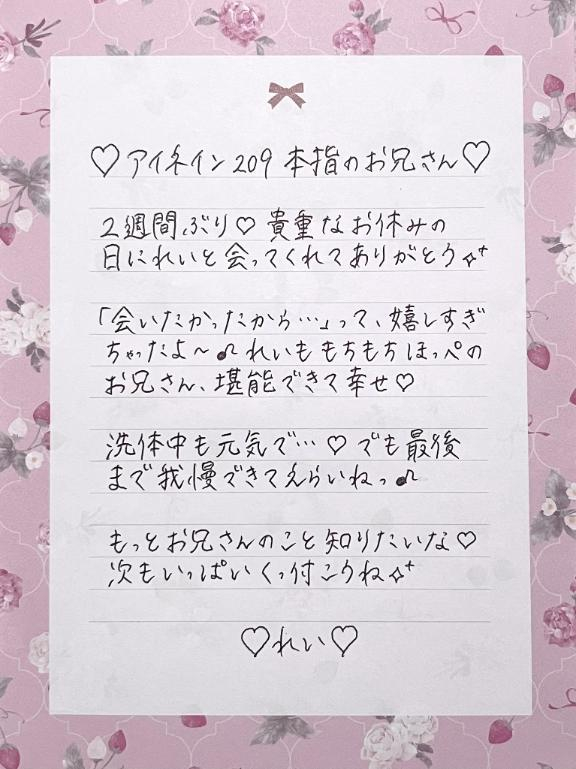 ♡アイネイン209 本指のお兄さん♡
2週間ぶり♡貴重なお休みの
日にれいと会ってくれてありがとう✧⁺
「会いたかったから…」って、嬉しすぎ
ちゃったよ〜♫れいももちもちほっぺの
お兄さん、堪能できて幸せ♡
洗体中も元気で…♡でも最後
まで我慢できてえらいねっ♫
もっとお兄さんのこと知りたいな♡
次もいっぱいくっ付こうね✧⁺
♡れい♡